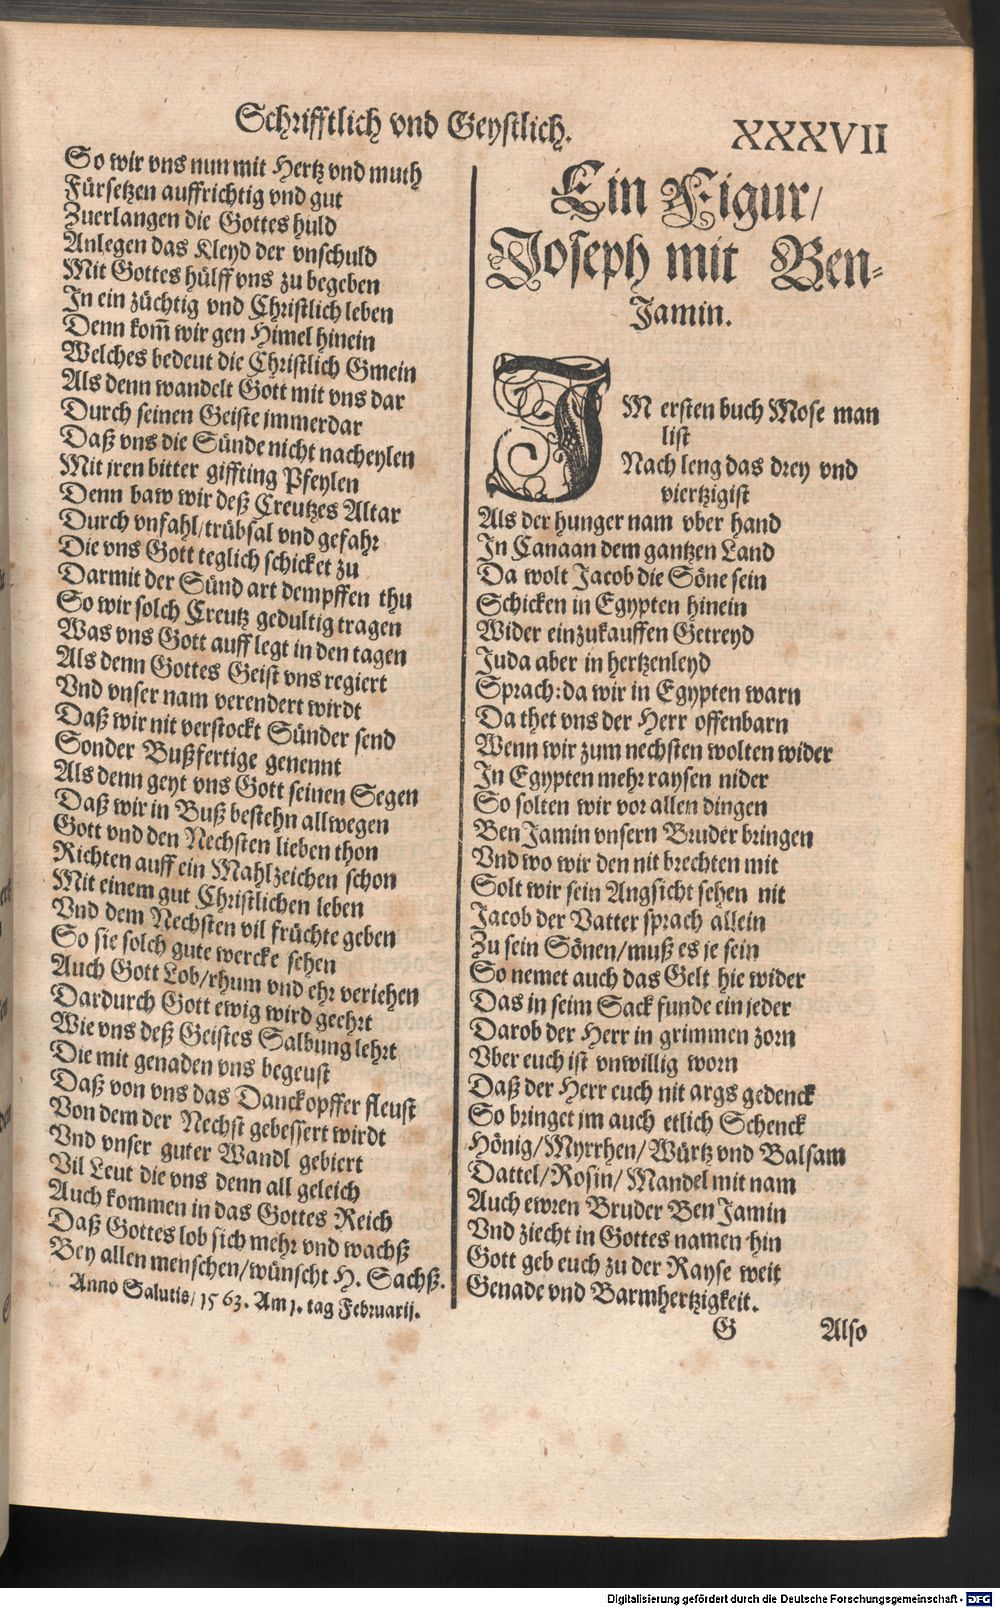 Schrifftlich vnd Geystlich.
XXXVII
So wir vns nun mit Hertz vnd muth
Fürsetzen auffrichtig vnd gut
Zuerlangen die Gottes huld
Anlegen das Kleyd der vnschuld
Mit Gottes hülff vns zu begeben
In ein züchtig vnd Christlich leben
Denn kom̃ wir gen Himel hinein
Welches bedeut die Christlich Gmein
Als denn wandelt Gott mit vns dar
Durch seinen Geiste jmmerdar
Daß vns die Sünde nicht nacheylen
Mit jren bitter giffting Pfeylen
Denn baw wir deß Creutzes Altar
Durch vnfahl/trübsal vnd gefahr
Die vns Gott teglich schicket zu
Darmit der Sünd art dempffen thu
So wir solch Creutz gedultig tragen
Was vns Gott auff legt in den tagen
Als denn Gottes Geist vns regiert
Vnd vnser nam verendert wirdt
Daß wir nit verstockt Sünder send
Sonder Bußfertige genennt
Als denn geyt vns Gott seinen Segen
Daß wir in Buß bestehn allwegen
Gott vnd den Nechsten lieben thon
Richten auff ein Mahlzeichen schon
Mit einem gut Christlichen leben
Vnd dem Nechsten vil früchte geben
So sie solch gute wercke sehen
Auch Gott Lob/rhum vnd ehr veriehen
Dardurch Gott ewig wird geehrt
Wie vns deß Geistes Salbung lehrt
Die mit genaden vns begeust
Daß von vns das Danckopffer fleust
Von dem der Nechst gebessert wirdt
Vnd vnser guter Wandl gebiert
Vil Leut die vns denn all geleich
Auch kommen in das Gottes Reich
Daß Gottes lob sich mehr vnd wachß
Bey allen menschen/wünscht H. Sachß.
Anno Salutis/1563. Am 1. tag Februarij.
Ein Figur/
Joseph mit Ben-
Jamin.
IM ersten buch Mose man
list
Nach leng das drey vnd
viertzigist
Als der hunger nam vber hand
In Canaan dem gantzen Land
Da wolt Jacob die Söne sein
Schicken in Egypten hinein
Wider einzukauffen Getreyd
Juda aber in hertzenleyd
Sprach:da wir in Egypten warn
Da thet vns der Herr offenbarn
Wenn wir zum nechsten wolten wider
In Egypten mehr raysen nider
So solten wir vor allen dingen
Ben Jamin vnsern Bruder bringen
Vnd wo wir den nit brechten mit
Solt wir sein Angsicht sehen nit
Jacob der Vatter sprach allein
Zu sein Sönen/muß es je sein
So nemet auch das Gelt hie wider
Das in seim Sack funde ein jeder
Darob der Herr in grimmen zorn
Vber euch ist vnwillig worn
Daß der Herr euch nit args gedenck
So bringet jm auch etlich Schenck
Hönig/Myrrhen/Würtz vnd Balsam
Dattel/Rosin/Mandel mit nam
Auch ewren Bruder Ben Jamin
Vnd ziecht in Gottes namen hin
Gott geb euch zu der Rayse weit
Genade vnd Barmhertzigkeit.
G
Also
Digitalisierung gefördert durch die Deutsche Forschungsgemeinschaft - DFG